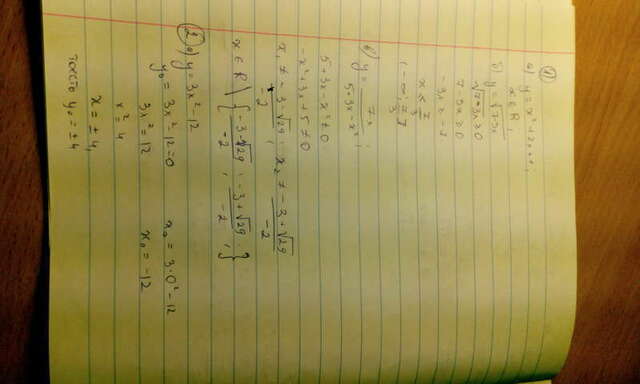 ①
а) y = x² + 2x + 1;
x ∈ R
б) y = √7-3x
√7-3x ≥ 0
7-3x ≥ 0
-3x ≥ -7
x ≤ 7/3
(-∞; 7/3]
в) y = 7x / 5+3x-x²;
5+3x-x² ≠ 0
-x²+3x+5 ≠ 0
x₁ ≠ -3-√29 / -2 ; x₂ ≠ -3+√29 / -2
x ∈ R \ { -3-√29 / -2 ; -3+√29 / -2 ; }
② а) y = 3x²-12
y₀ = 3x²-12=0 x₀ = 3·0²-12
3x² = 12 x₀ = -12
x² = 4
x = ±4,
тобто y₀ = ±4